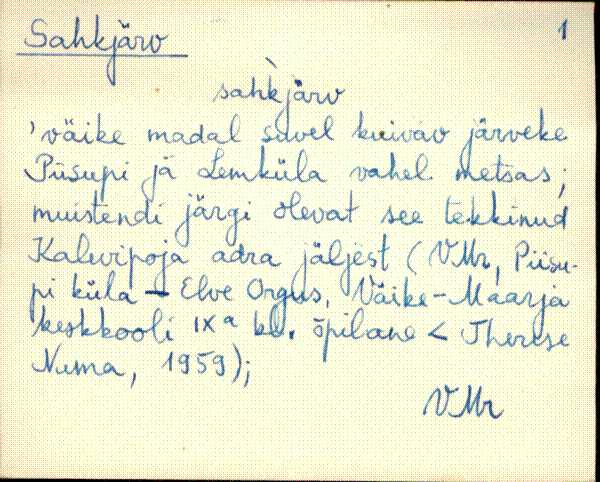 Sahkjärv 1
sahkjärv
'väike madal suvel kuivav järveke
Piisupi ja Lemküla vahel metsas;
muistendi järgi olevat see tekkinud
Kalevipoja adra jäljest (VMr, Piisu-
pi küla – Elve Orgus, Väike-Maarja
keskkooli IXª kl. õpilane < Therese
Numa, 1959);
VMr